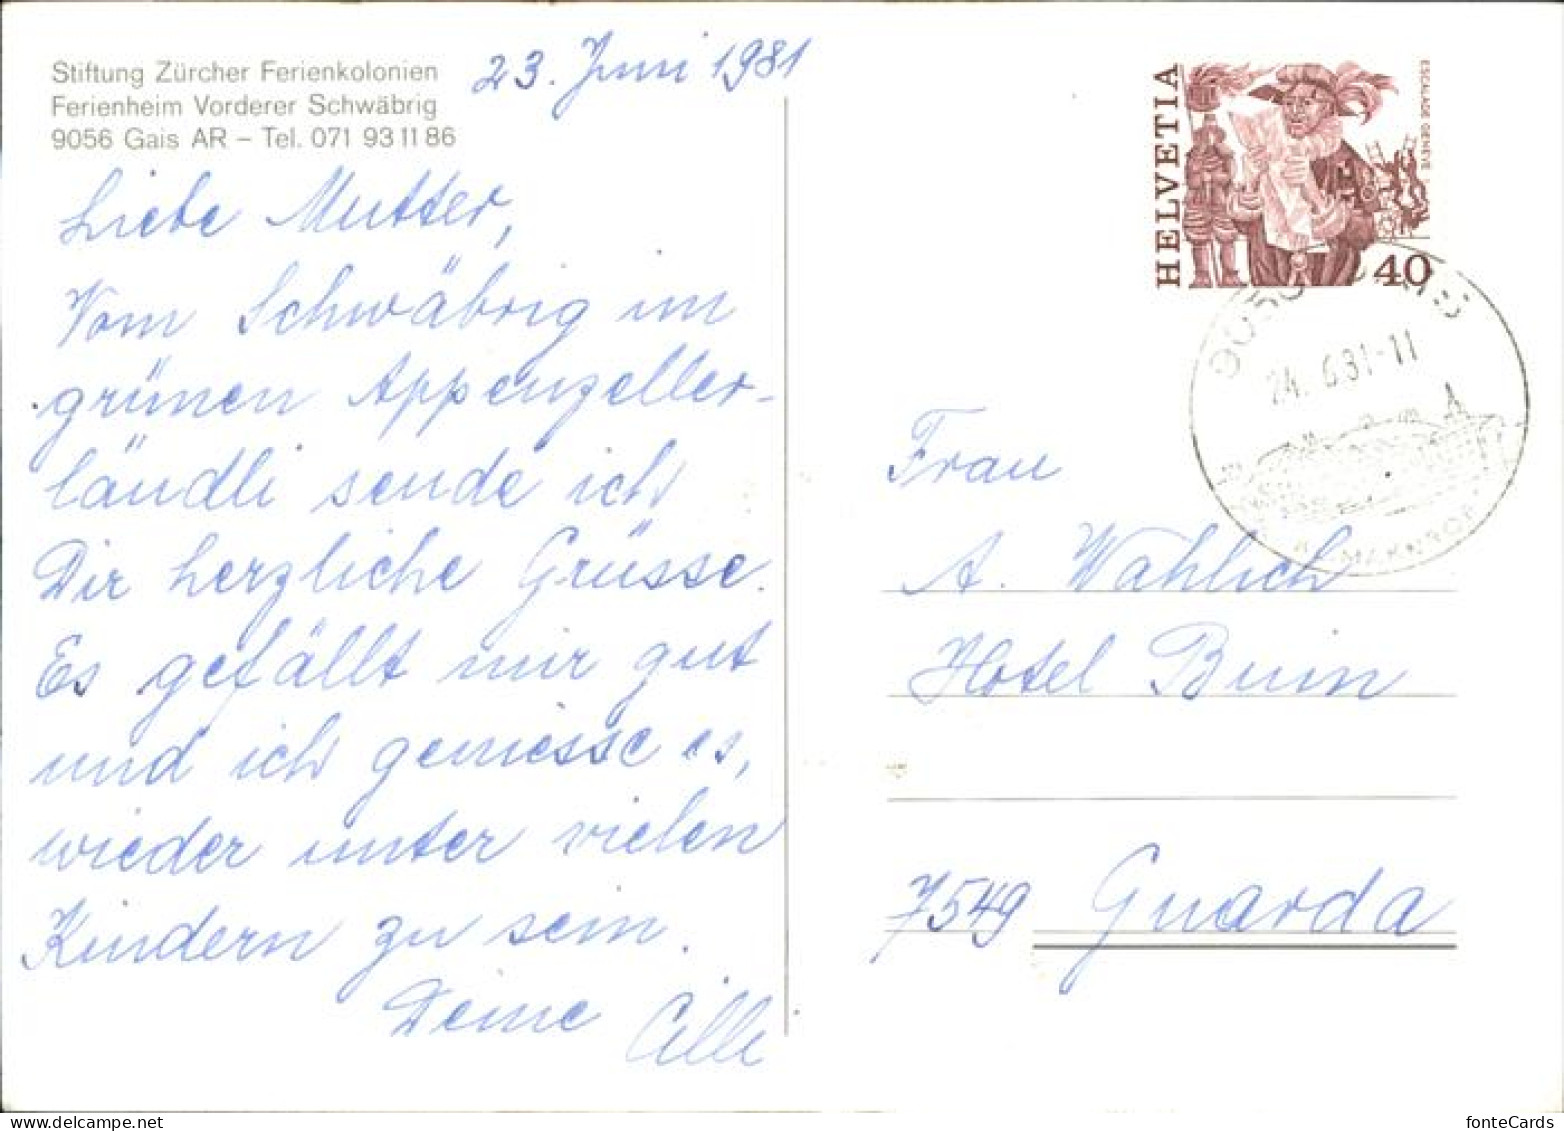 Stiftung Zürcher Ferienkolonien
Ferienheim Vorderer Schwäbrig
9056 Gais AR – Tel. 071 93 11 86
23. Juni 1981
Liebe Mutter,
Vom Schwäbrig im
grünen Appenzeller-
ländli sende ich
Dir herzliche Grüsse.
Es gefällt mir gut
und ich geniesse es,
wieder unter vielen
Kindern zu sein.
Deine Cilli
HELVETIA
ESCALADE GENÈVE
40
9056 GAIS
24.6.81-11
Frau
A. Wahlich
Hotel Buin
7549 Guarda
fonteCards